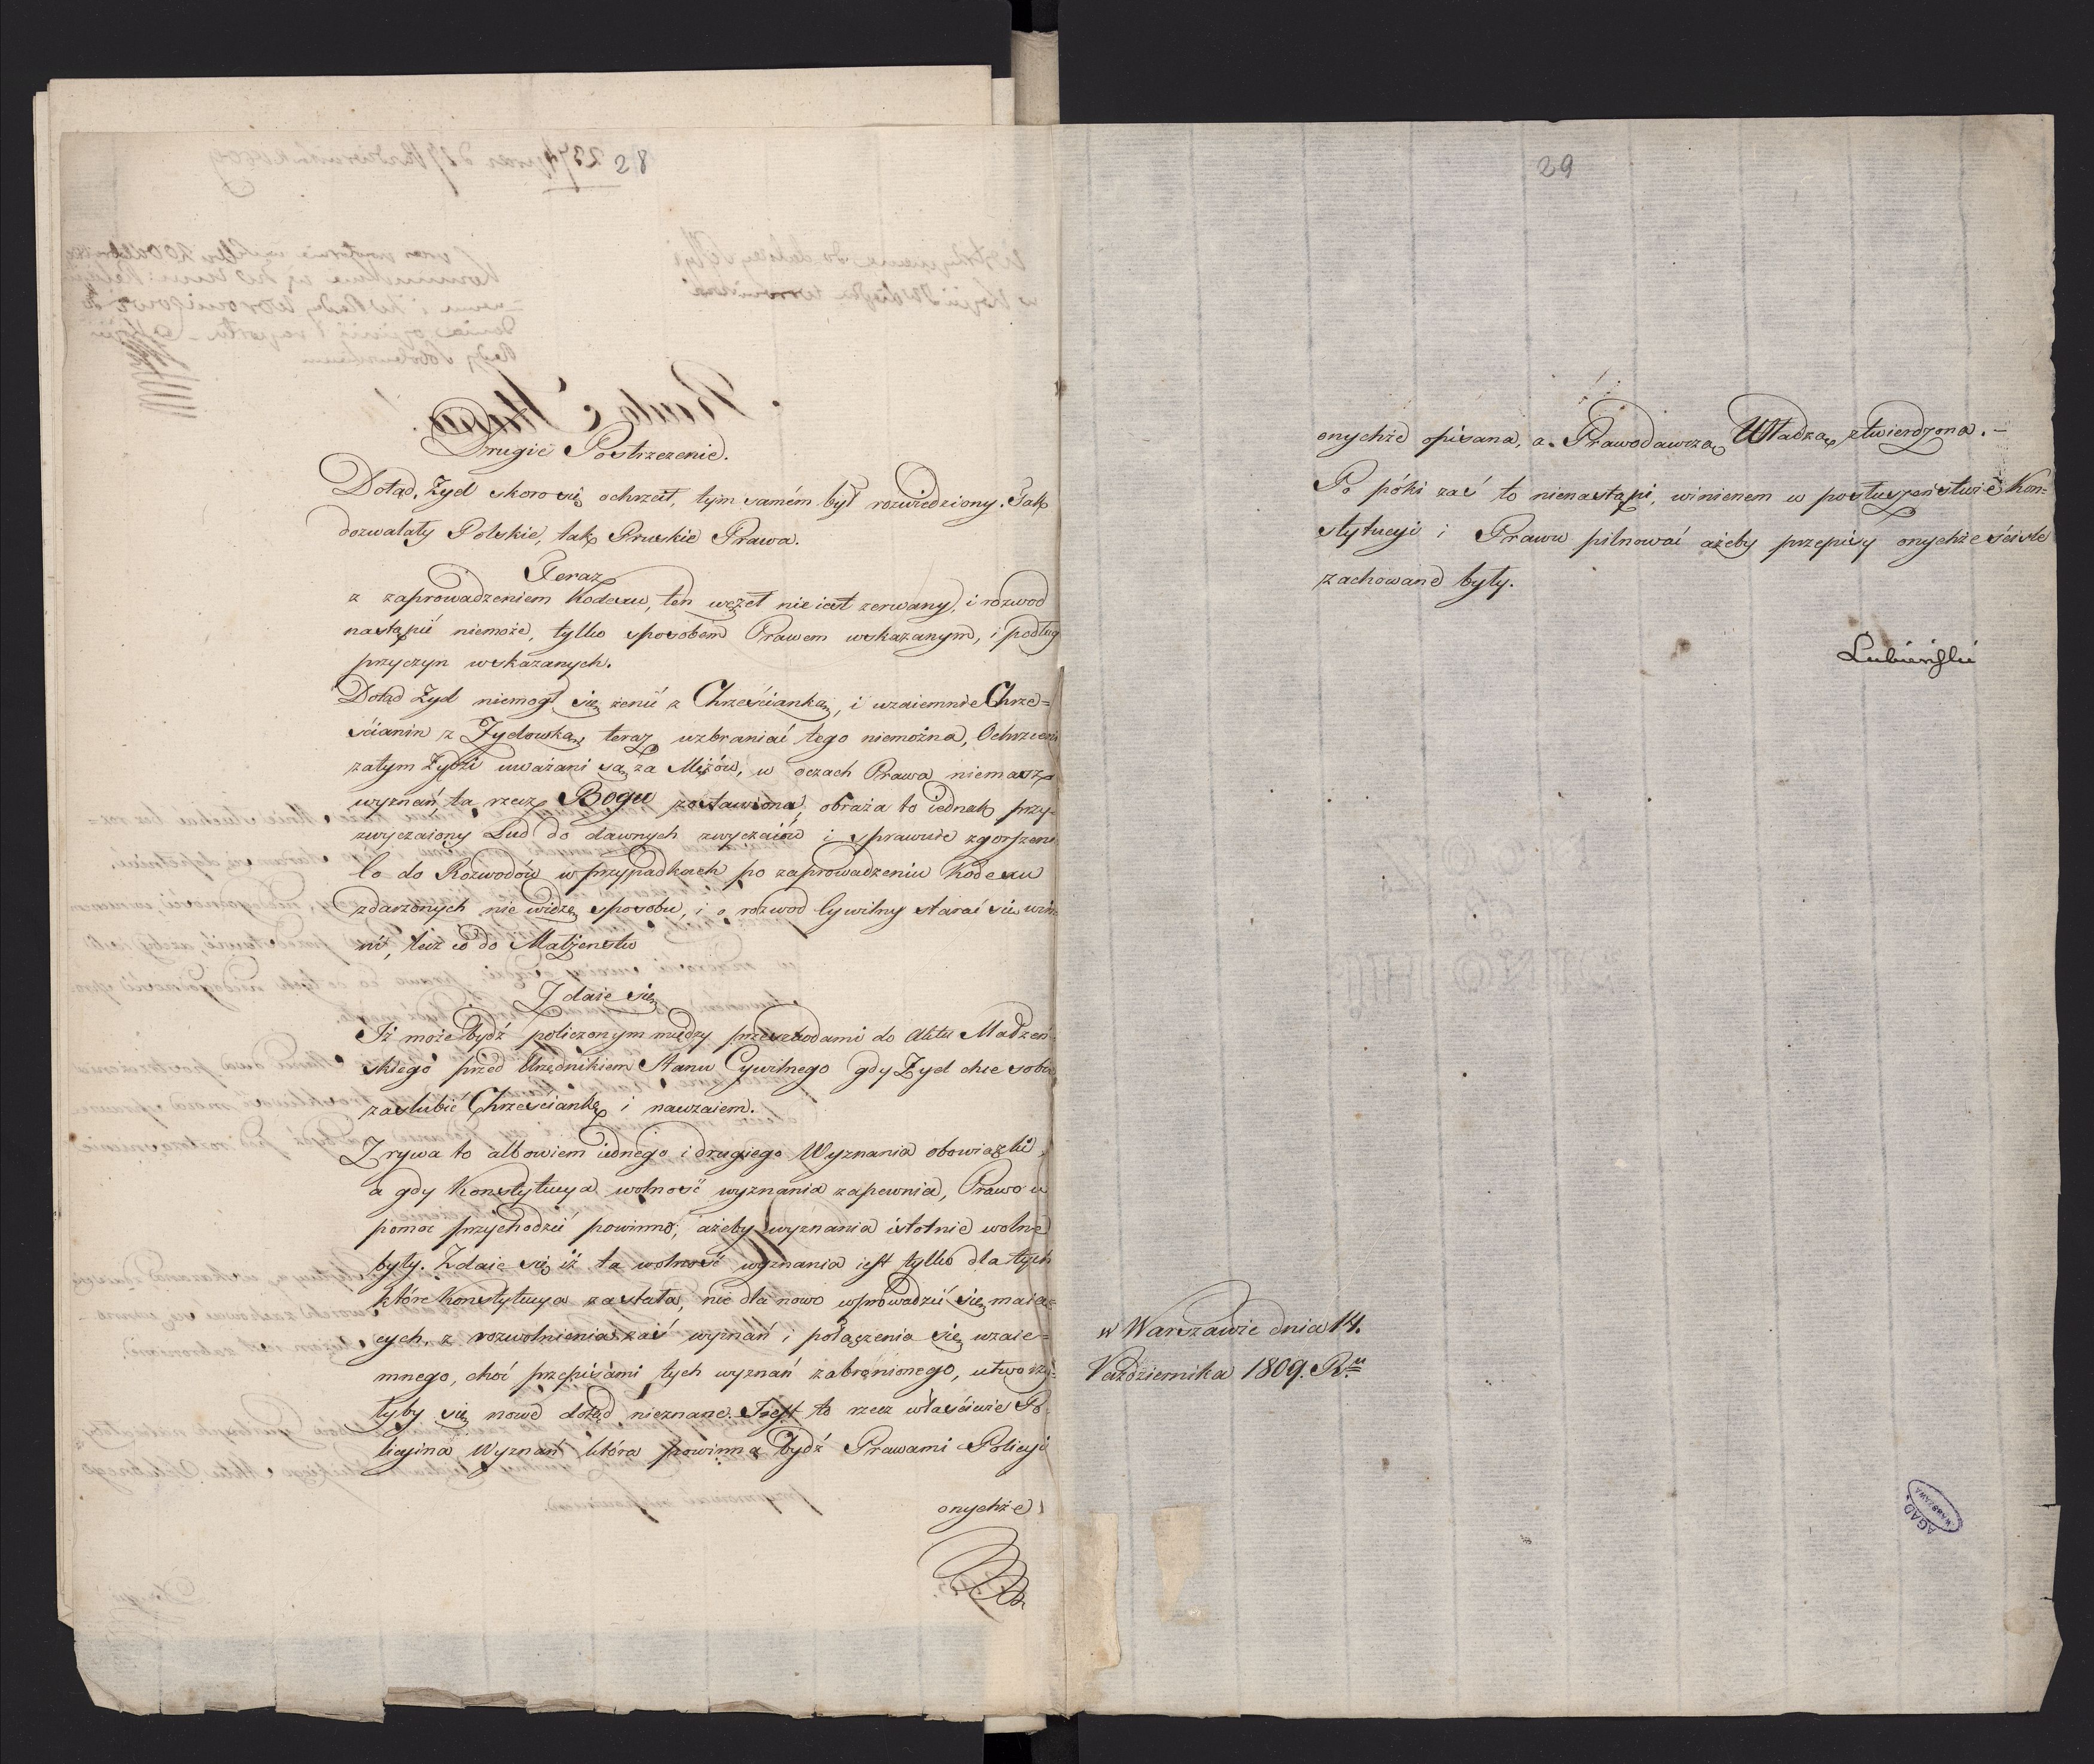 28
Drugie Postrzezenie.
Dotąd, Żyd skoro się ochrzcił, tym samém był rozwiedziony. Jak
dozwalały Polskie, tak Pruskie Prawa.
Teraz
z zaprowadzeniem Kodexu, ten węzeł nie iest zerwany, i rozwod
nastąpić niemoże, tylko sposobem Prawem wskazanym, i podług
przyczyn wskazanych.
Dotąd Żyd niemogł się żenić z Chrześcianką, i wzaiemnie Chrze=
ścianin z Żydowską, teraz wzbraniać tego niemożna, Ochrzceni
zatym Żydzi uważani są za Mężów, w oczach Prawa niemasz
wyznań, ta rzecz Bogu zostawiona, obraża to iednak przy-
zwyczaiony Lud do dawnych zwyczaiów i sprawuie zgorszeni
Co do Rozwodów w przypadkach po zaprowadzeniu Kodexu
zdarzonych nie widzę sposobu, i o rozwod Cywilny starać się win-
ni, lecz co do Małżenstw
Zdaie się
Iż może bydź policzonym między przeszkodami do Aktu Małżeń-
skiego przed Urzędnikiem Stanu Cywilnego gdy Żyd chce sobie
zaslubić Chrześciankę i nawzaiem.
Zrywa to albowiem iednego i drugiego Wyznania obowiązki,
a gdy Konstytucya wolność wyznania zapewnia, Prawo w
pomoc przychodzić powinno, ażeby wyznania istotnie wolne
były. Zdaie się iż ta wolność wyznania iest tylko dla tych
które Konstytucya zastała, nie dla nowo wprowadzić się maią=
cych, z rozwolnienia zaś wyznań i połączenia się wzaie=
mnego, choć przepisami tych wyznań zabronionego, utworzy-
łyby się nowe dotąd nieznane. Jest to rzecz właściwie Po-
licyina Wyznań która powinna bydź Prawami Policyi
onychże
29
onychże opisana, a Prawodawczą Władzą ztwierdzona. -
Po póki zaś to nienastąpi, winienem w posłuszeństwie Kon=
stytucyi i Prawu pilnować ażeby przepisy onychże ściśle
zachowane były.
Lubieński
w Warszawie dnia 14.
Października 1809. Ru
AGAD
WARSZAWA